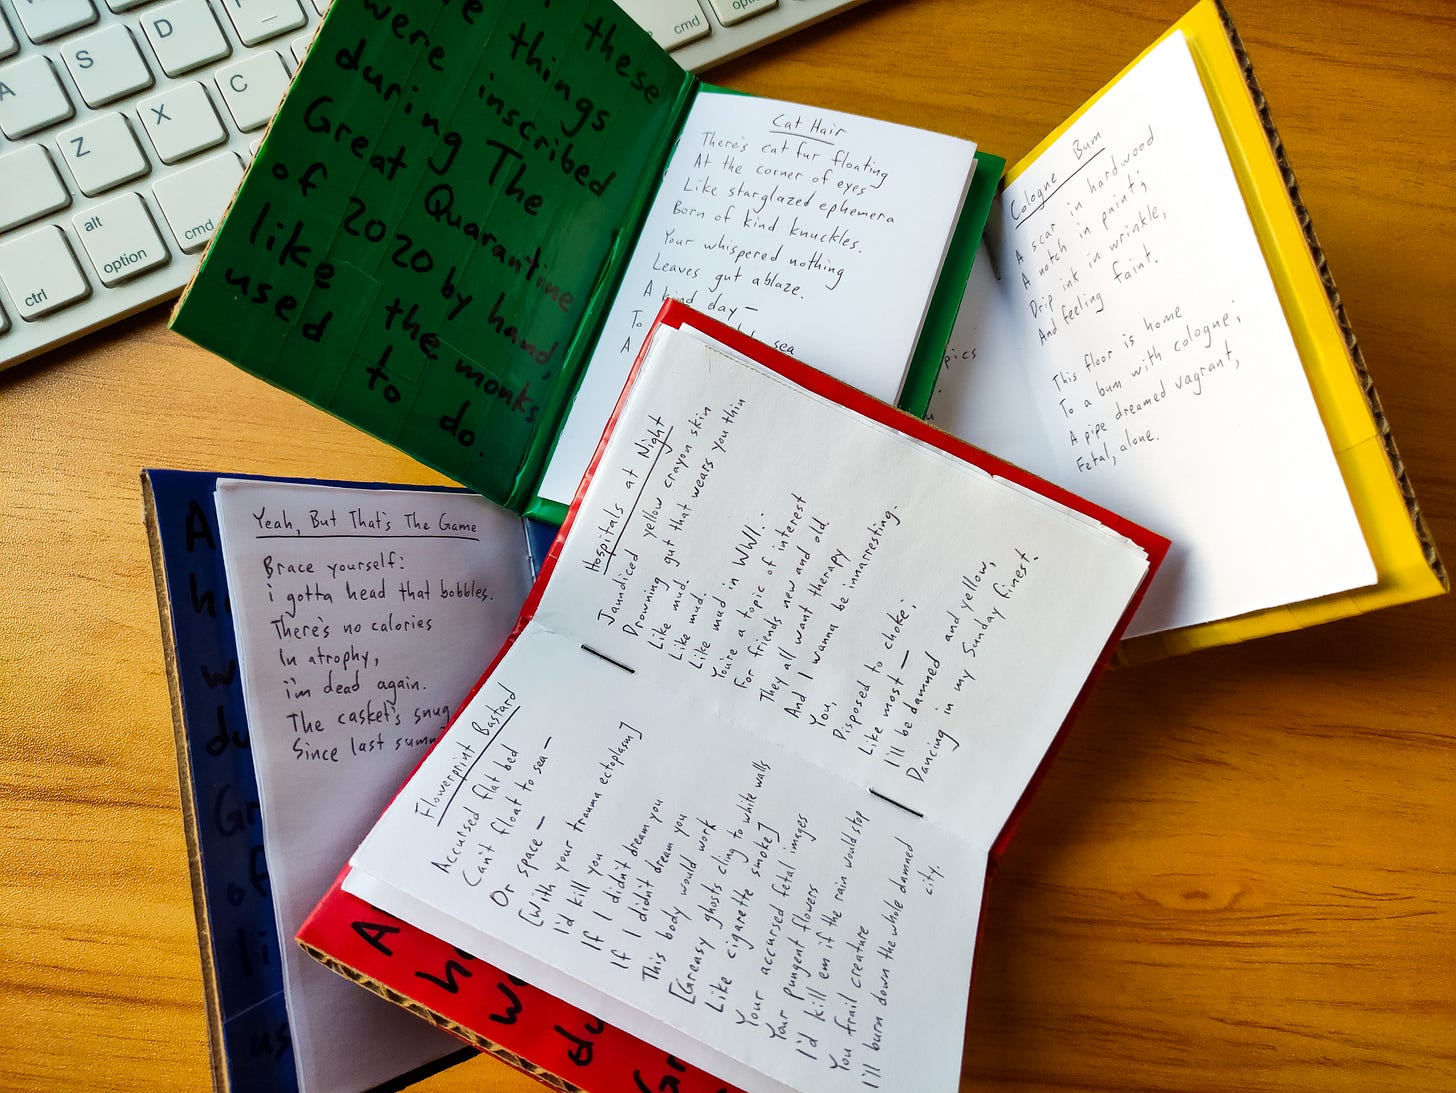 A
S
D
Z
X
C
ctrl
alt
option
cmd
cmd
option
these
things
were inscribed
during The
Great Quarantine
of 2020 by hand,
like the monks
used to do.
Cat Hair
There's cat fur floating
At the corner of eyes
Like starglazed ephemera
Born of kind knuckles.
Your whispered nothing
Leaves gut ablaze.
A kind day —
To
A sea
pics
Cologne Bum
A scar in hardwood
A notch in paint;
Drip ink in wrinkle,
And feeling faint.
This floor is home
To a bum with cologne;
A pipe dreamed vagrant,
Fetal, alone.
Yeah, But That's The Game
Brace yourself:
i gotta head that bobbles.
There's no calories
In atrophy,
i'm dead again.
The casket's snug
Since last summ
Hospitals at Night
Jaundiced yellow crayon skin
Drowning gut that wears you thin
Like mud.
Like mud.
Like mud in WWI.
You're a topic of interest
For friends new and old.
They all want therapy
And I wanna be innarresting.
You,
Disposed to choke;
Like most —
I'll be damned and yellow,
Dancing in my Sunday finest.
Flowerprint Bastard
Accursed flat bed
Can't float to sea —
Or space —
[With your trauma ectoplasm]
I'd kill you
If I didn't dream you
If I didn't dream you
This body would work
[Greasy ghosts cling to white walls
Like cigarette smoke]
Your accursed fetal images
Your pungent flowers
I'd kill em if the rain would stop
You frail creature
I'll burn down the whole damned
city.
A